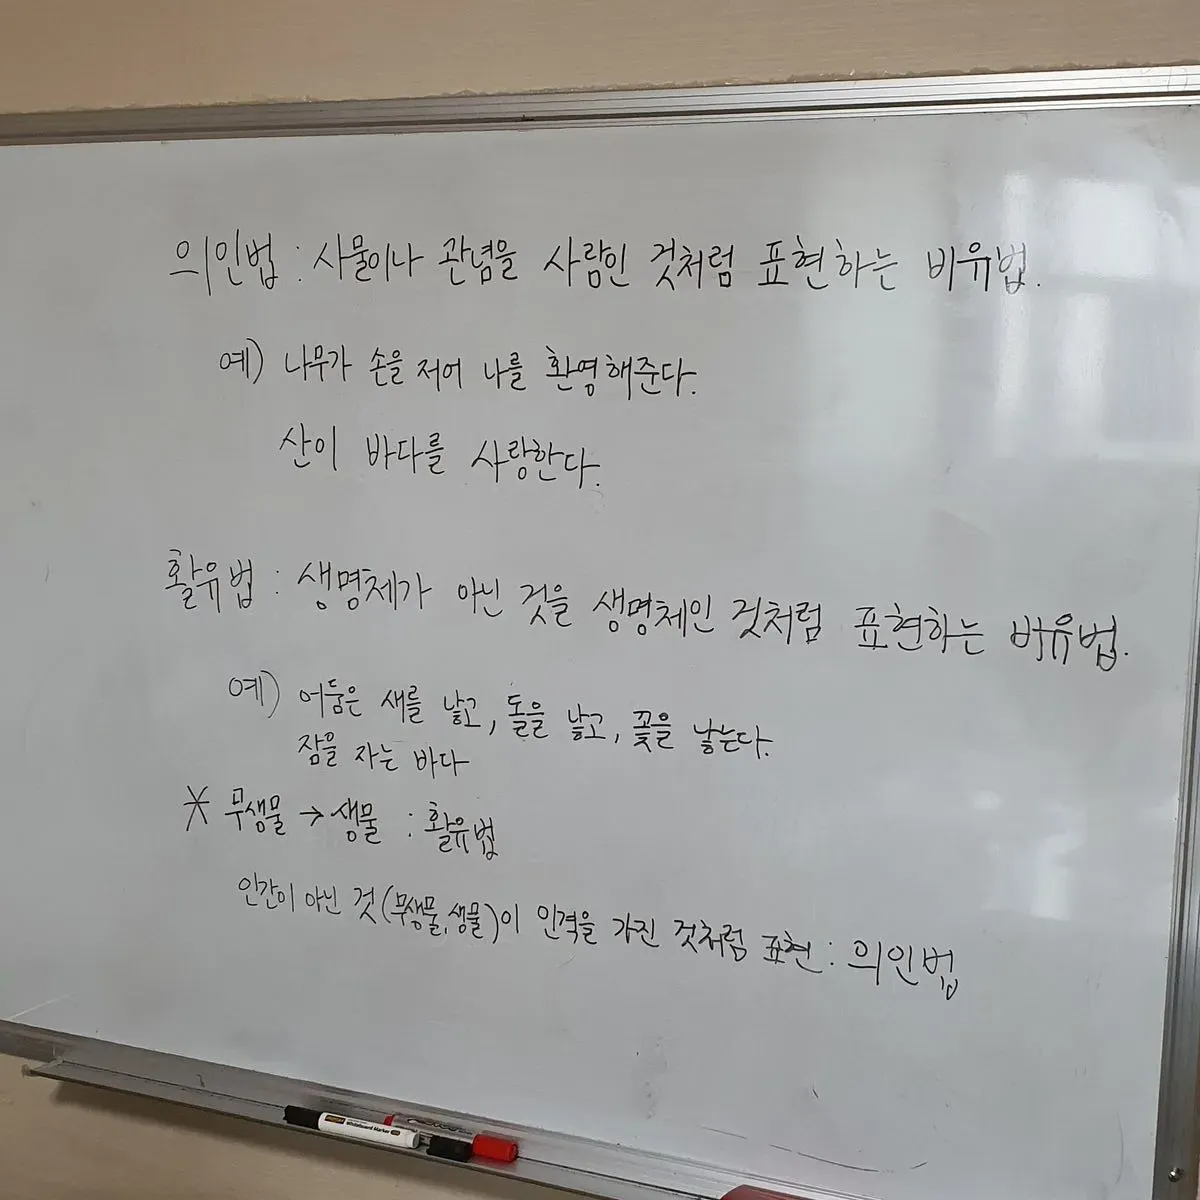 의인법 : 사물이나 관념을 사람인 것처럼 표현하는 비유법.
예) 나무가 손을 저어 나를 환영해준다.
산이 바다를 사랑한다.
활유법 : 생명체가 아닌 것을 생명체인 것처럼 표현하는 비유법.
예) 어둠은 새를 낳고, 돌을 낳고, 꽃을 낳는다.
잠을 자는 바다
* 무생물 → 생물 : 활유법
인간이 아닌 것(무생물, 생물)이 인격을 가진 것처럼 표현 : 의인법